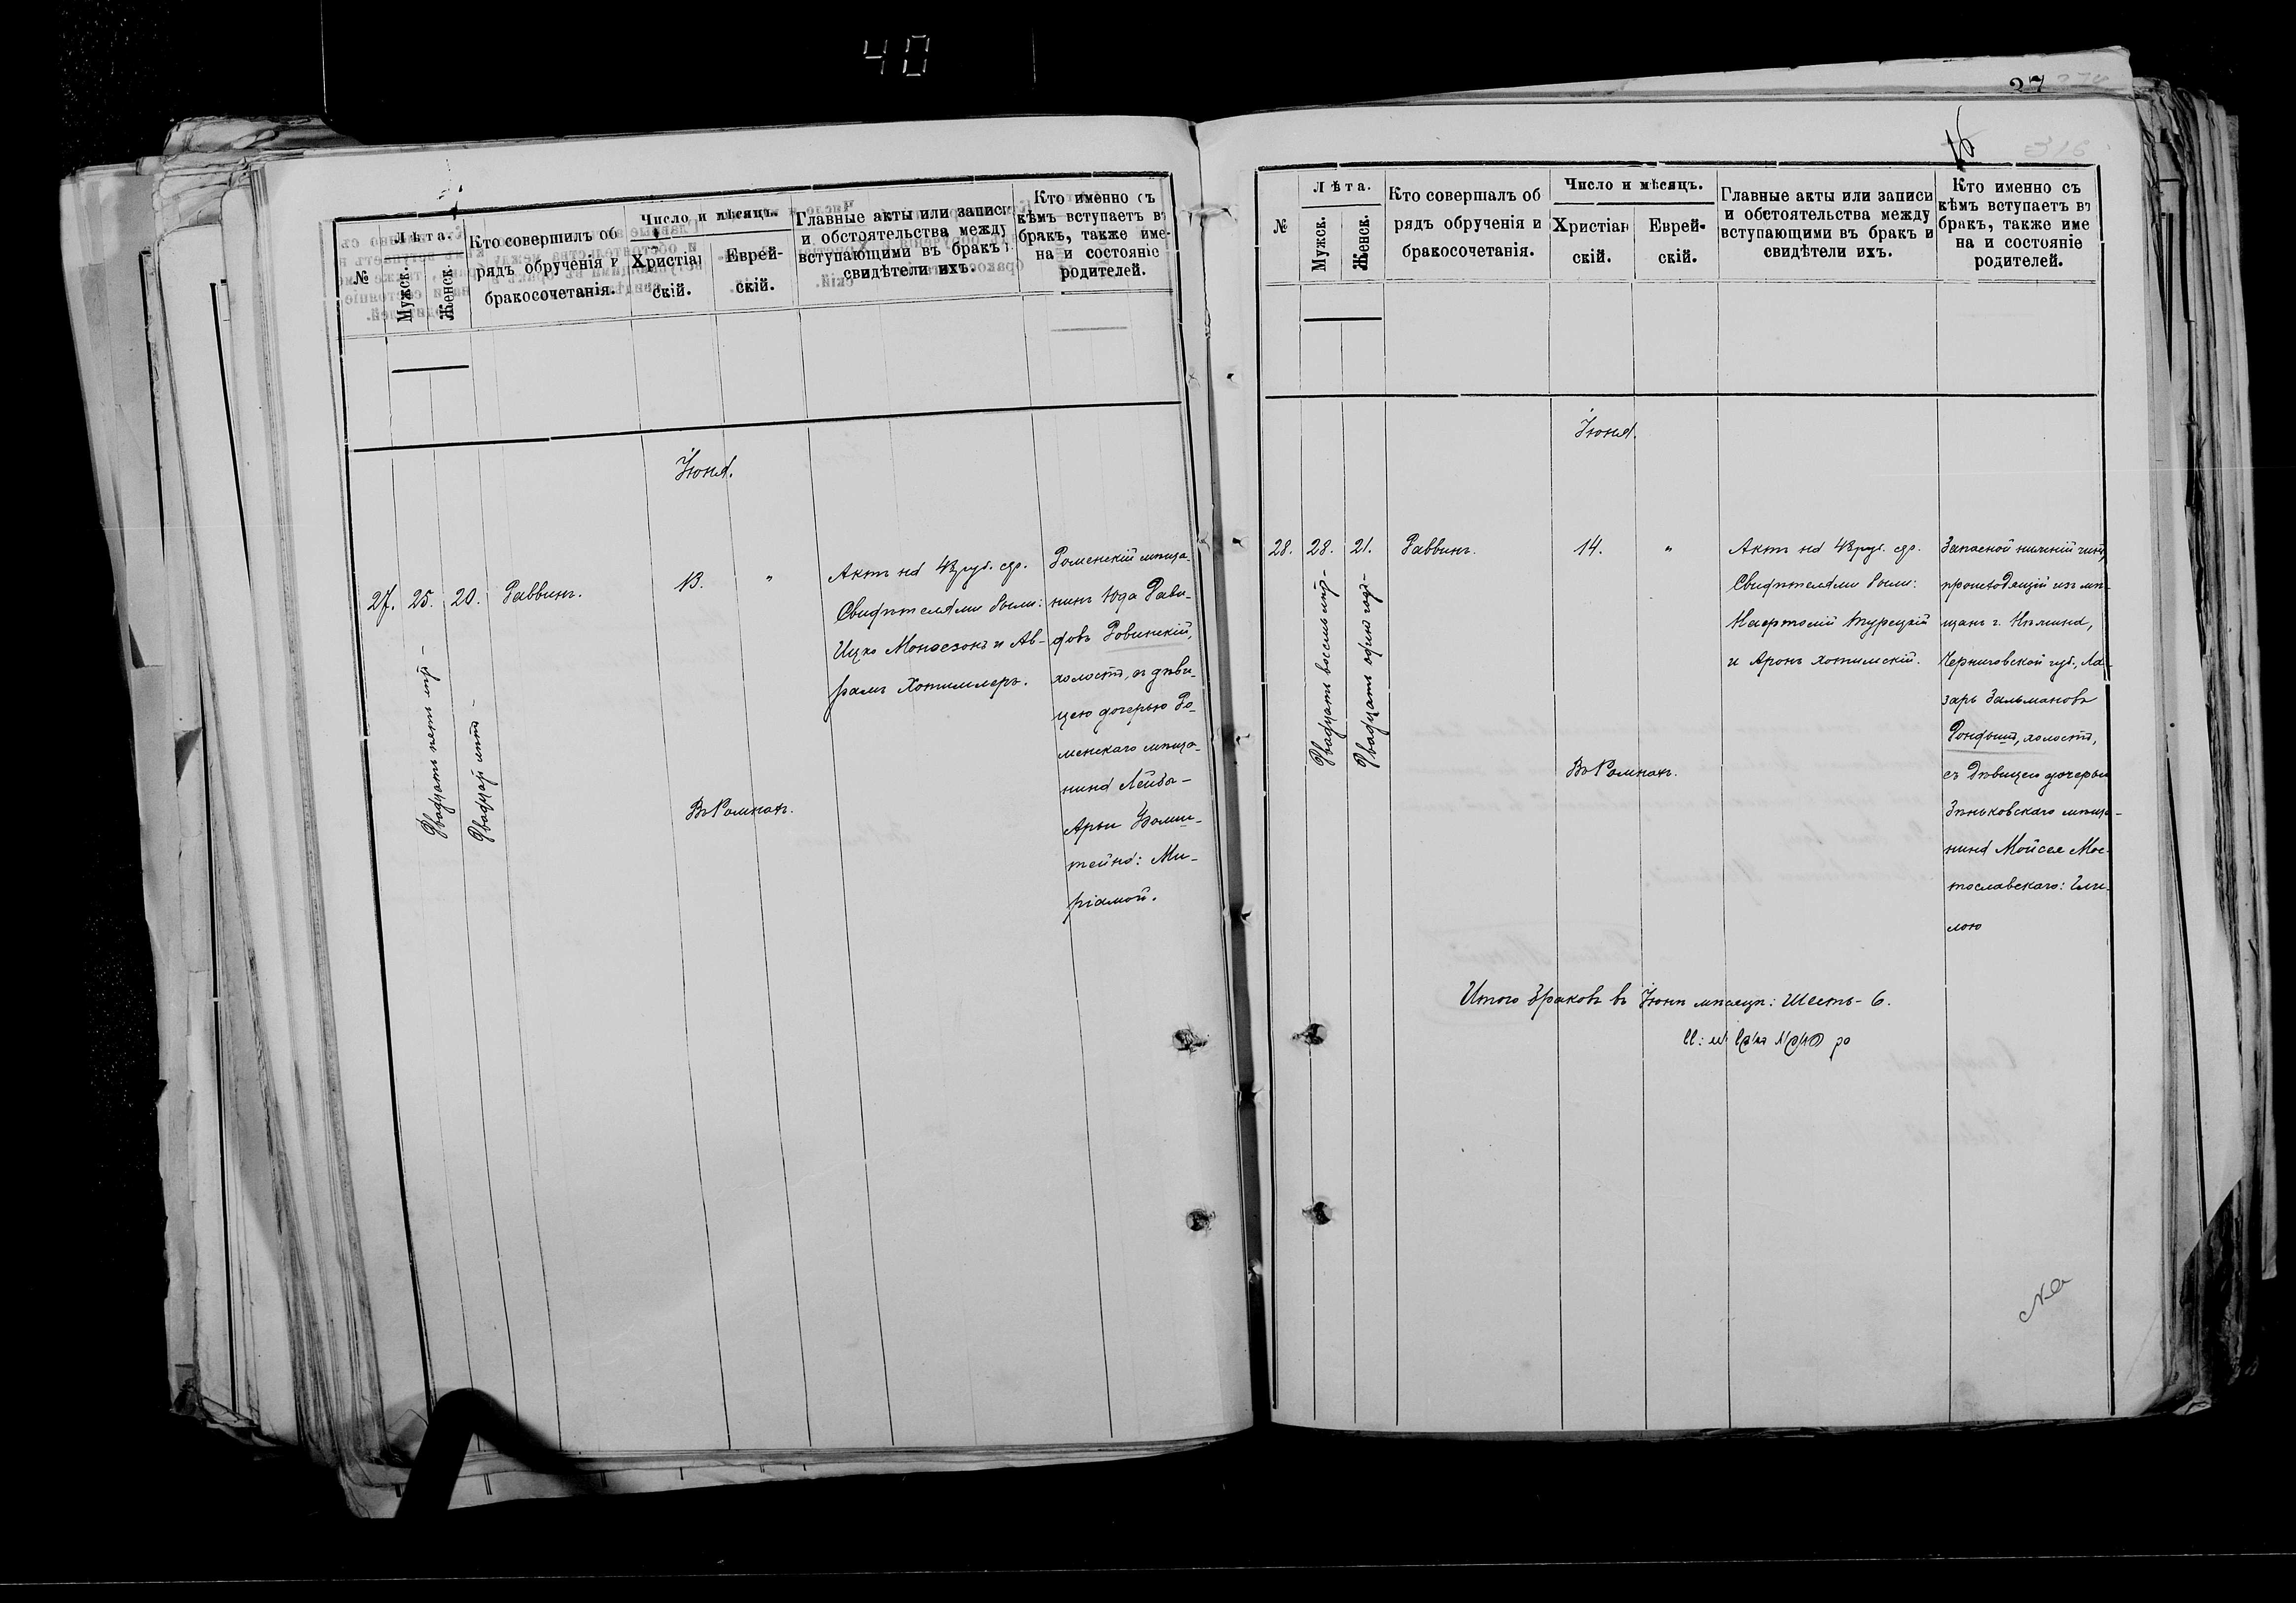 40
№
Лѣта.
Мужск.
Женск.
Кто совершилъ об
рядъ обрученія и
бракосочетанія.
Число и мѣсяцъ.
Христіан
скій.
Еврей-
скій.
Главные акты или записи
и обстоятельства между
вступающими въ бракъ и
свидѣтели ихъ.
Кто именно съ
кѣмъ вступаетъ въ
бракъ, также име-
на и состояніе
родителей.
Іюня.
27.
25.
Двадцать пять лѣтъ
20.
Двадцать лѣтъ
Раввинъ.
13.
"
Въ Ромнахъ.
Актъ на 48 руб. сер.
Свидѣтелями были:
Ицко Монасзонъ и Ав-
рамъ Хотимлеръ.
Роменскій мѣща-
нинъ Юда Рави-
довъ Ровинскій,
холостъ, съ дѣви-
цею дочерью Ро-
менскаго мѣща-
нина Лейбы-
Арьи Бомш-
тейна: Ми-
ріамой.
316
№
Лѣта.
Мужск.
Женск.
Кто совершалъ об
рядъ обрученія и
бракосочетанія.
Число и мѣсяцъ.
Христіан
скій.
Еврей-
скій.
Главные акты или записи
и обстоятельства между
вступающими въ бракъ и
свидѣтели ихъ.
Кто именно съ
кѣмъ вступаетъ въ
бракъ, также име
на и состояніе
родителей.
Іюня.
28.
28.
Двадцать восемь лѣтъ
21.
Двадцать одинъ годъ
Раввинъ.
14.
"
Въ Ромнахъ.
Актъ на 48 руб. сер.
Свидѣтелями были:
Нафтолій Турецкій
и Аронъ Хотимскій.
Запасной нижній чинъ,
происходящій изъ мѣ-
щанъ г. Нѣжина,
Черниговской губ., Ла-
зарь Зальмановъ
Рондышъ, холостъ,
съ дѣвицею дочерью
Зѣньковскаго мѣща-
нина Мойсея Мос-
тославскаго:
лою
Итого браковъ въ Іюнѣ мѣсяцѣ: Шесть - 6.